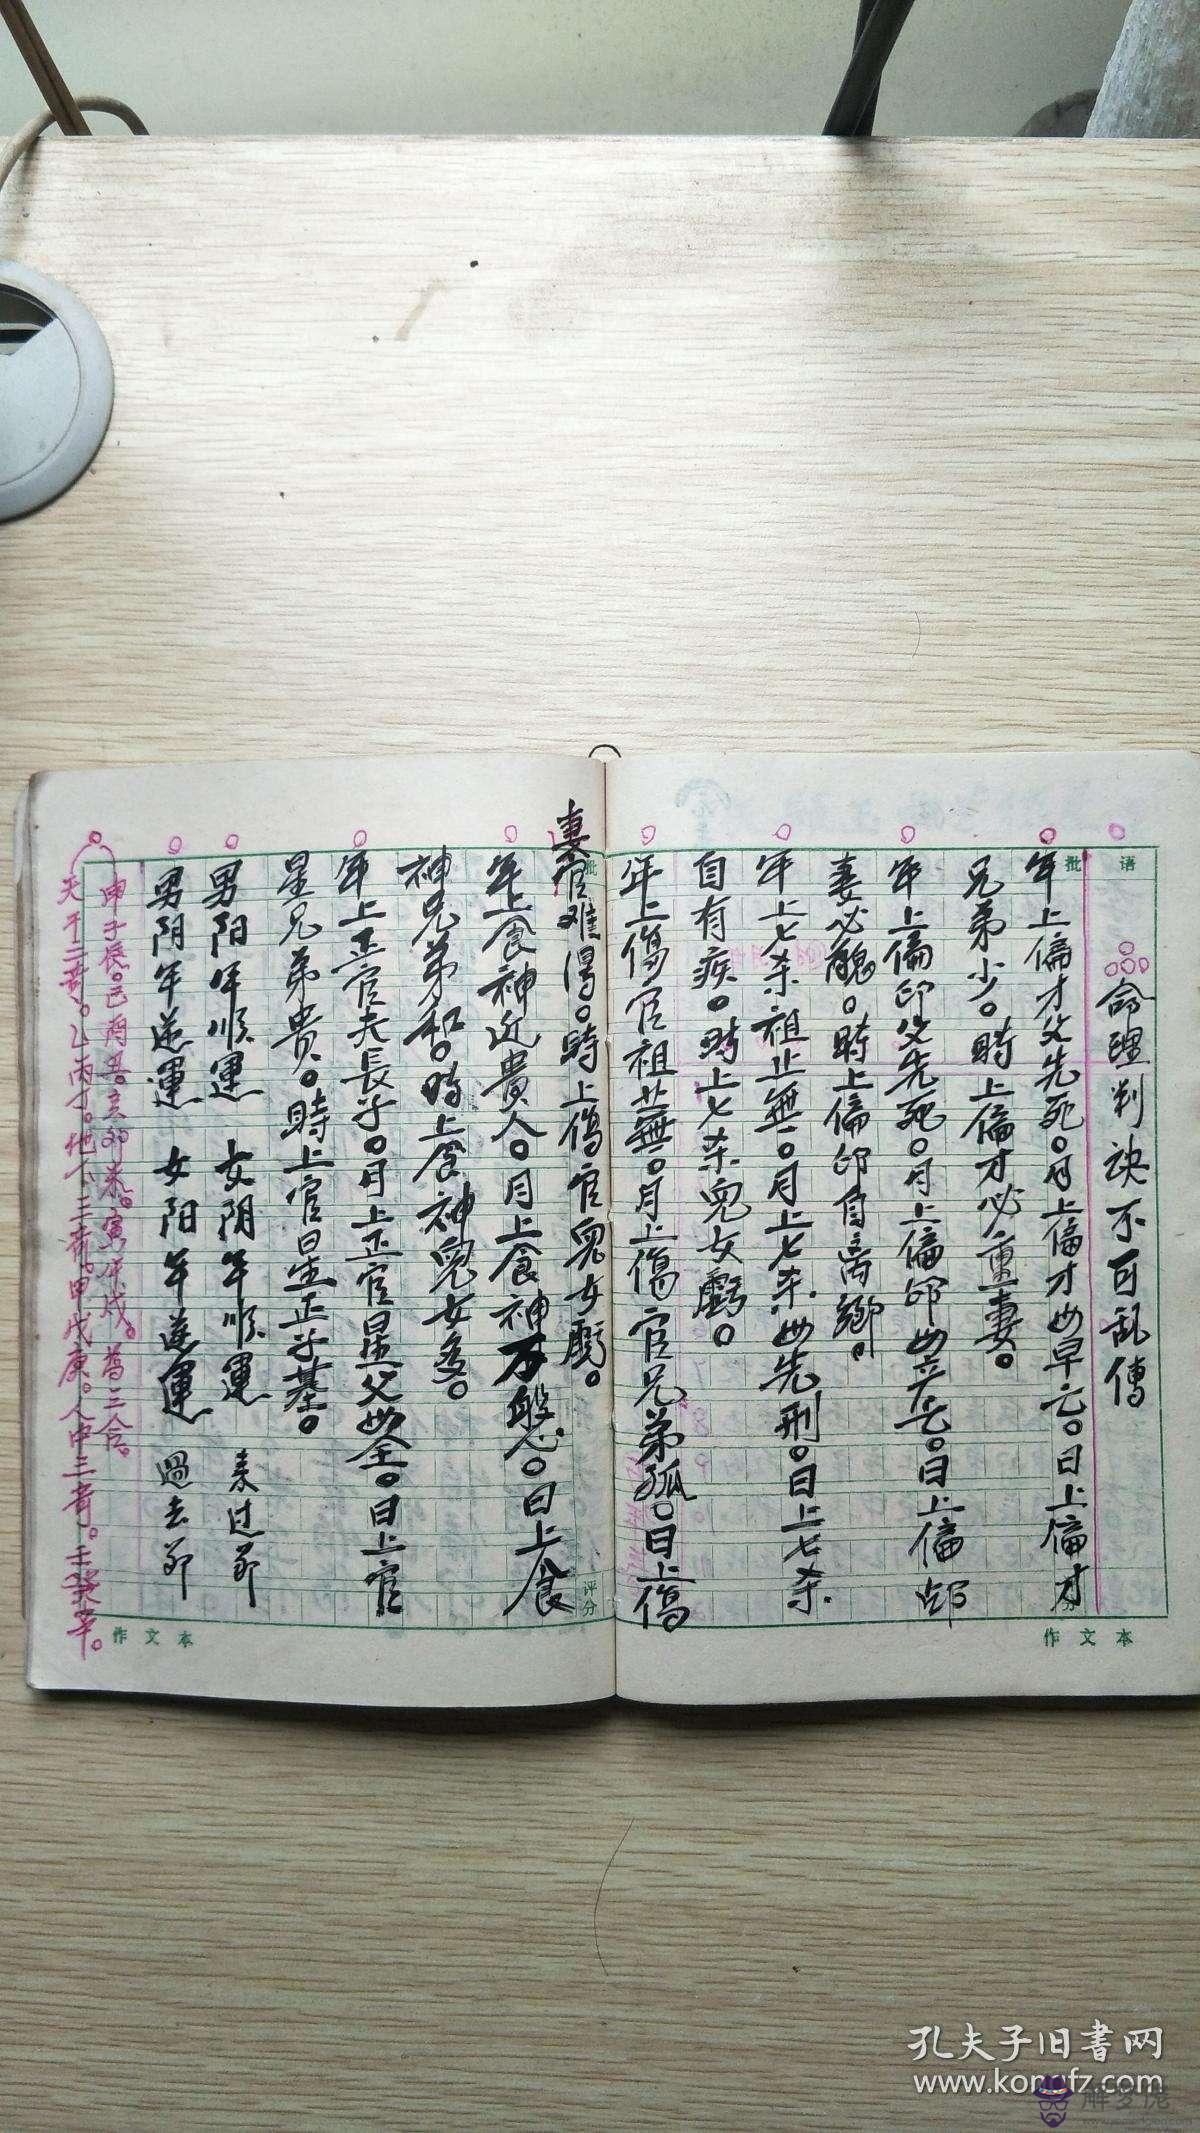 批语
命理判诀不可乱傳
年上偏才父先死。月上偏才母早亡。日上偏才
兄弟少。時上偏才必重妻。
年上偏印父先死。月上偏印母亡。日上偏印
妻必醜。時上偏印自离鄉。
年上七杀祖上無。月上七杀母先刑。日上七杀
自有疾。時上七杀兒女虧。
年上傷官祖上無。月上傷官兄弟孤。日上傷
妻官难得。時上傷官兒女虧。
年上食神近貴人。月上食神万般。日上食
神兄弟和。時上食神兒女多。
年上正官夫長子。月上正官星父母全。日上官
星兄弟貴。時上官星正子基。
男阳年顺運 女阴年顺運 未过节
男阴年逆運 女阳年逆運 過去节
申子辰。巳酉丑。亥卯未。寅午戌。為三合。
天干三奇。乙丙丁。地下三奇。甲戊庚。人中三奇。壬癸辛。
批
评分
作文本
作文本
孔夫子旧書网
www.kongfz.com
解梦佬